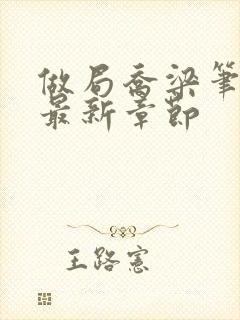 做局喬梁筆
最新章節
王路憲